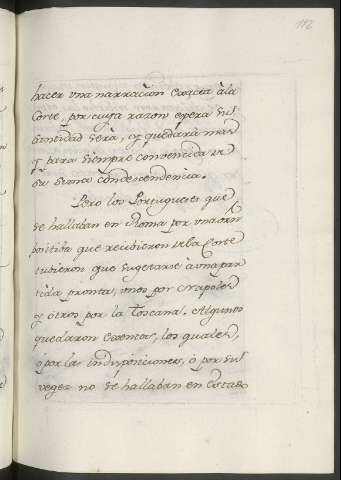 112
hacer una narracion exacta à la
Corte, por cuya razon espera su
Santidad será, y quedará mas
y para siempre convencida de
su suma condescendencia.
Pero los Portugueses que
se hallaban en Roma por una orn
positiba que recibieron de la Corte
tubieron que sugetarse à una par
tida pronta, unos por Napoles
y otros por la Toscana. Algunos
quedaron exentos, los quales,
ò por las indisposiciones, ò por su
vegez no se hallaban en estado